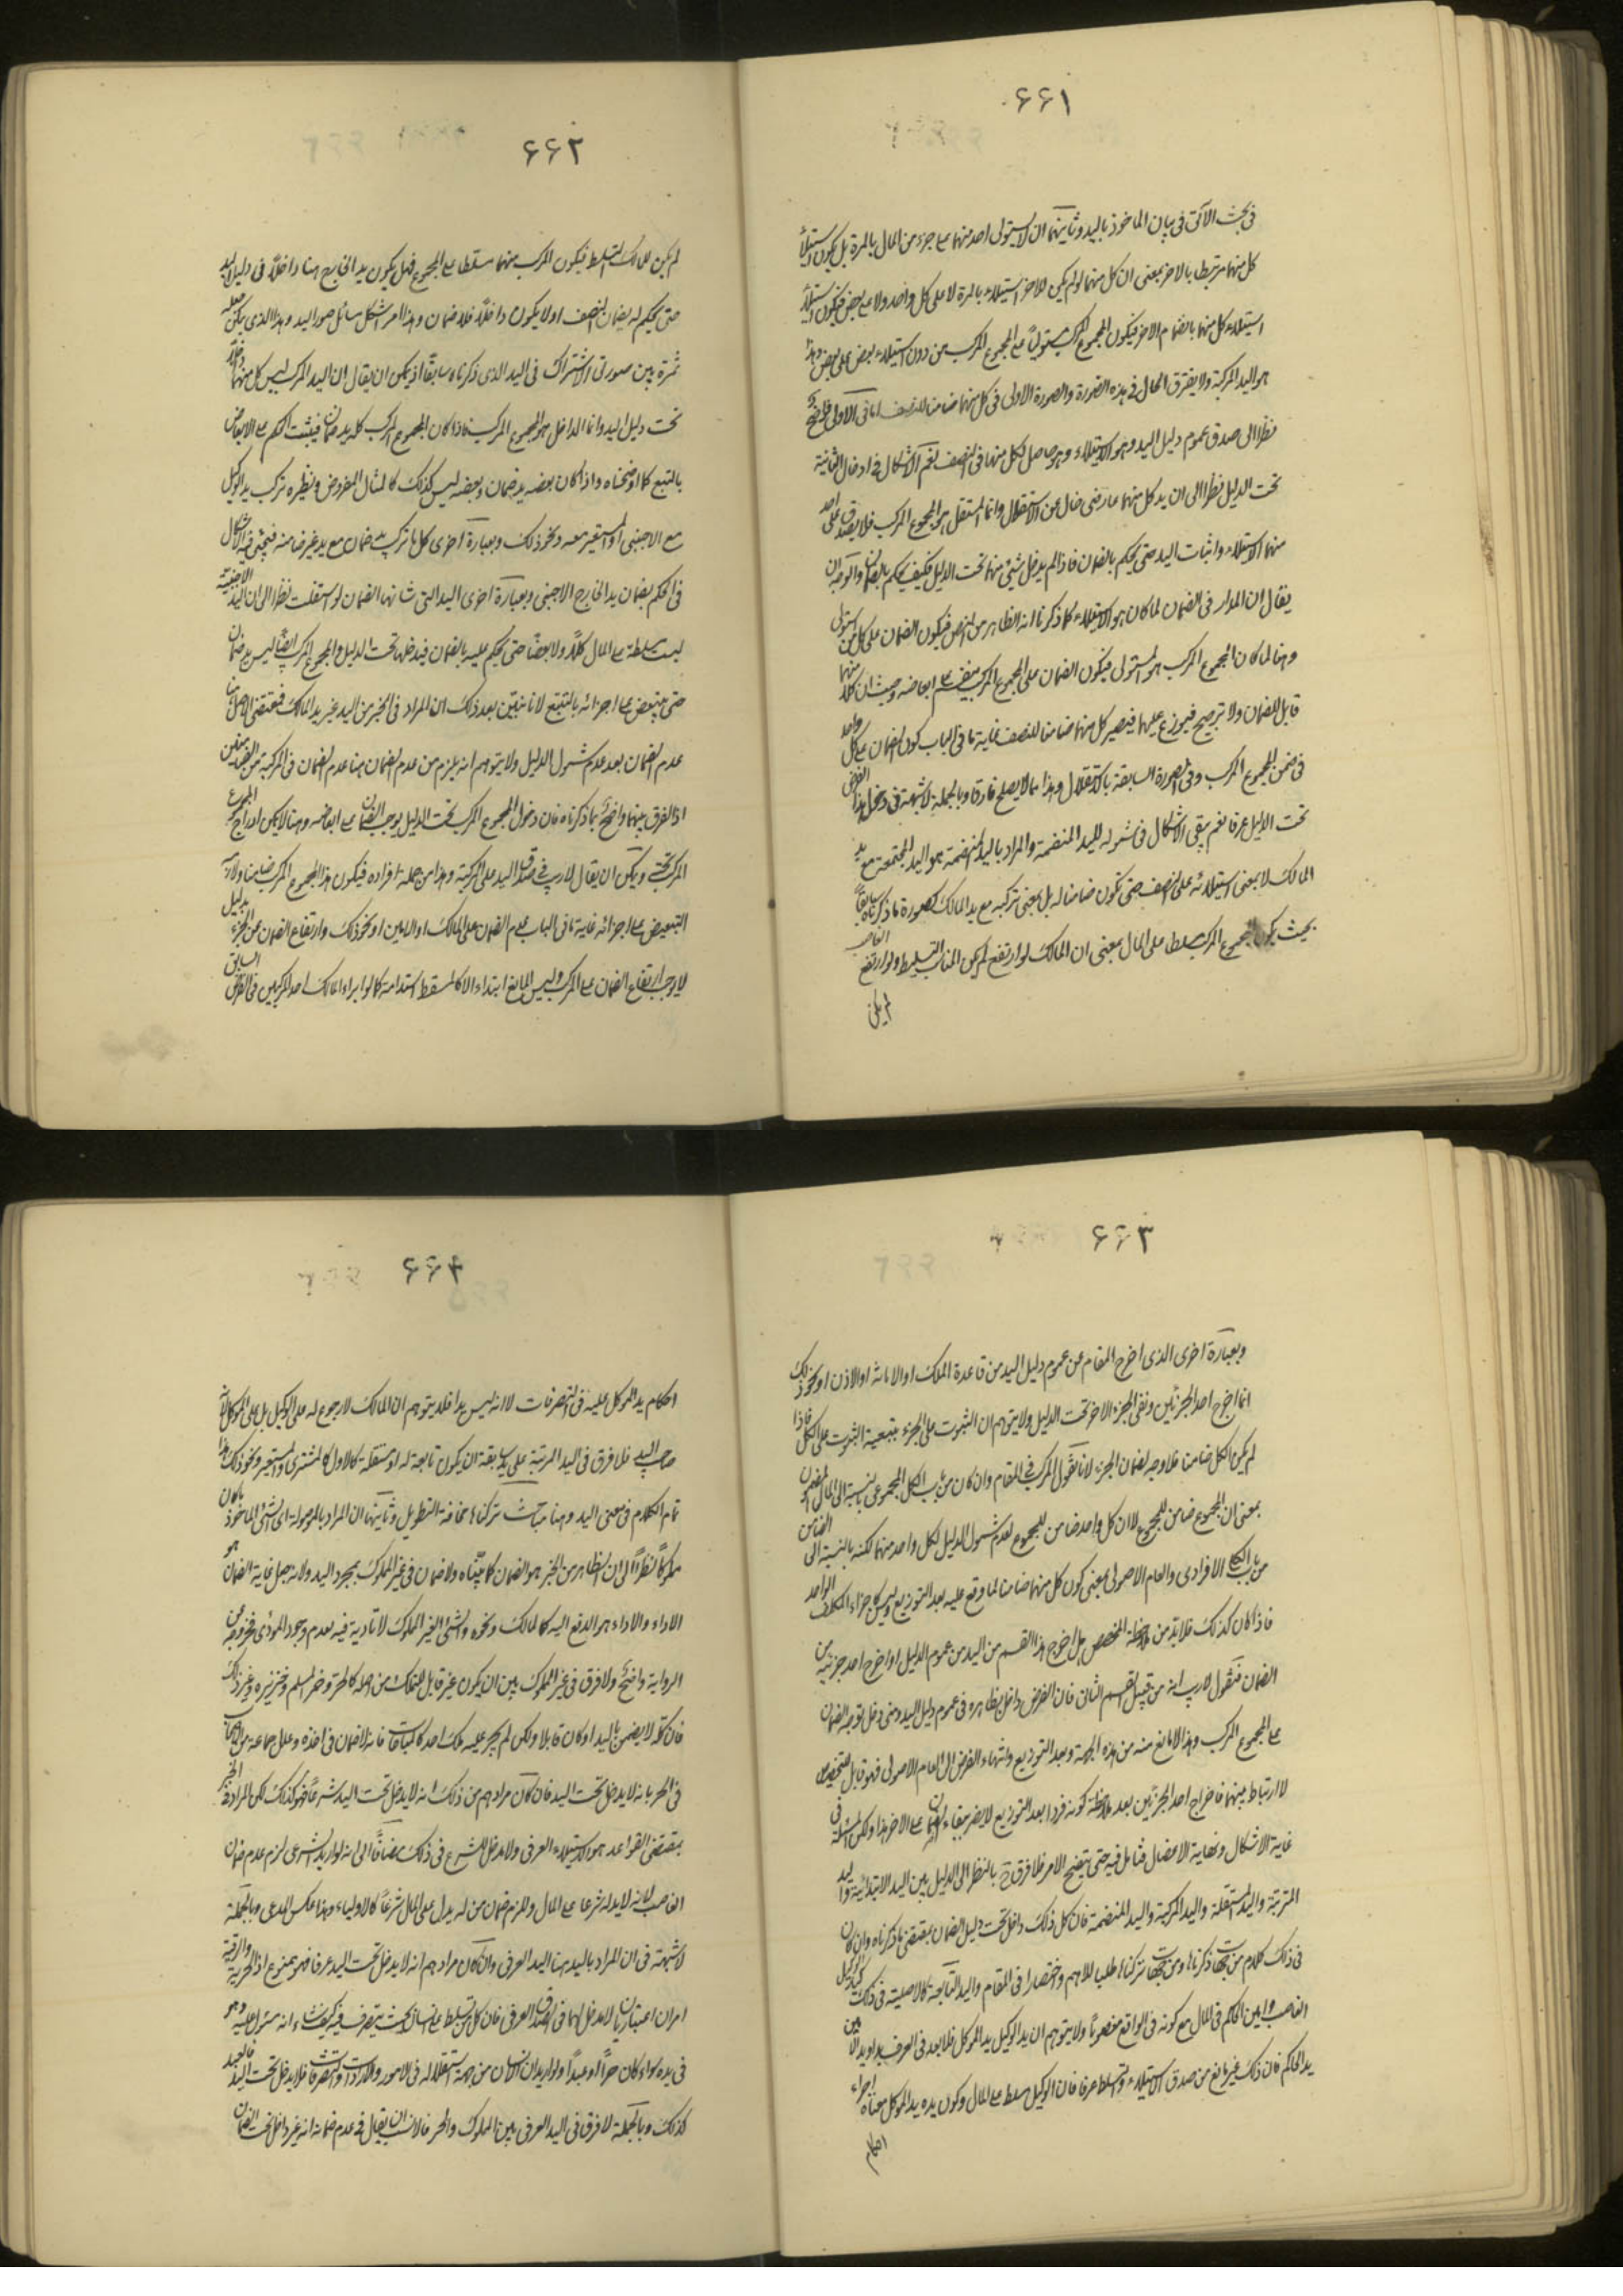 ۶۶۱
فى بحث الآتى فى بيان الماخوذ باليد وثانيتهما ان لا يستولى احد منهما على جزء من المال بالمرة بل يكون استيلاء
كل منهما مرتبطا بالاخر بمعنى ان كل منهما لو لم يكن للاخر استيلاء بالمرة لا على كل واحد ولا على بعض فيكون استيلاء
استيلاء كل منهما بانضمام الاخر فيكون المجموع المركب مستوليا على المجموع المركب من دون استيلاء بعض على بعض وهذا
هو اليد المركبة ولا يفترق الحال فى هذه الصورة والصورة الاولى فى كل منهما ضامنا للنصف اما فى الاولى فواضح
نظرا الى صدق عموم دليل اليد وهو الاستيلاء وهو حاصل لكل منهما فى النصف نعم الاشكال فى ادخال الثانية
تحت الدليل نظرا الى ان يد كل منهما عارضى خال عن الاستقلال وانما المستقل هو المجموع المركب فلا يصدق على احد
منهما الاستيلاء واثبات اليد حتى يحكم بالضمان فاذا لم يدخل شيئ منهما تحت الدليل فكيف يحكم بالضمان والوجه ان
يقال ان المدار فى الضمان لما كان هو الاستيلاء كما ذكرنا انه الظاهر من النص فيكون الضمان على كل من يستولى
وهنا لما كان المجموع المركب هو المستولى فيكون الضمان على المجموع المركب فيقسم على ابعاضه وحيث ان كلا منهما
قابل للضمان ولا ترجيح فيوزع عليهما فيصير كل منهما ضامنا للنصف غاية ما فى الباب كون الضمان على كل واحد
فى ضمن المجموع المركب وفى الصورة السابقة بالاستقلال وهذا مما لا يصلح فارقا وبالجملة لا شبهة فى دخول هذا الفرض
تحت الدليل عرفا نعم يبقى الاشكال فى شموله لليد المنضمة والمراد باليد المنضمة هو اليد المجتمعة مع يد
المالك لا بمعنى استيلائه على النصف حتى تكون ضامنا له بل بمعنى تركبه مع يد المالك كصورة ما ذكرناه سابقا
بحيث يكون المجموع المركب مسلطا على المال بمعنى ان المالك لو ارتفع لم يكن للغاصب التسليط ولو ارتفع الغاصب
لم يكن
۶۶۲
لم يكن للمالك التسلط فيكون المركب منهما مسلطا على المجموع فهل يكون يد الخارج هنا داخلا فى دليل اليد
حتى يحكم له بضمان النصف او لا يكون داخلا فلا ضمان وهذا امر اشكل مسائل صور اليد وهذا الذى يمكن جعله
ثمرة بين صورتى الاشتراك فى اليد الذى ذكرناه سابقا اذ يمكن ان يقال ان اليد المركب ليس كل منهما داخلا
تحت دليل اليد وانما الداخل هو المجموع المركب فاذا كان المجموع المركب كله يد ضمان فيثبت الحكم على الابعاض
بالتبع كما اوضحناه واذا كان بعضه يد ضمان وبعضه ليس كذلك كالمثال المفروض ونظيره تركب يد الوكيل
مع الاجنبى او المستعير معه ونحو ذلك وبعبارة اخرى كل ما تركب يد ضمان مع يد غير ضامنه فيجيئ فيه الاشكال
فى الحكم بضمان يد الخارج الاجنبى وبعبارة اخرى اليد التى شانها الضمان لو استقلت نظرا الى ان اليد الاجنبية
ليست مسلطة على المال كلا ولا بعضا حتى يحكم عليه بالضمان فيدخلها تحت الدليل والمجموع المركب ايضا ليس يد ضمان
حتى يتبعض على اجزائه بالتبع لانا نبين بعد ذلك ان المراد فى الخبر من اليد غير يد المالك فمقتضى الاصل هنا
عدم الضمان بعد عدم شمول الدليل ولا يتوهم انه يلزم من عدم الضمان هنا عدم الضمان فى المركبة من الضمانين
اذ الفرق بينهما واضح بما ذكرناه فان دخول المجموع المركب تحت الدليل يوجب الضمان على ابعاضه وهنا لا يمكن ادراج المجموع
المركب تحته ويمكن ان يقال لا ريب فى صدق اليد على المركبة وهذا من جملة افراده فيكون هذا المجموع المركب ضامنا ولازمه
التبعيض على اجزائه غاية ما فى الباب عدم الضمان على المالك او الامين او نحو ذلك وارتفاع الضمان عن الجزء بدليل
لا يوجب ارتفاع الضمان على المركب وليس المانع ابتداء الا كالمسقط استدامة كما لو ابراء المالك احد المركبين فى الفرض السابق
۶۶۳
وبعبارة اخرى الذى اخرج المقام عن عموم دليل اليد من قاعدة الملك او الامانة او الاذن او نحو ذلك
انما اخرج احد الجزئين وبقى الجزء الاخر تحت الدليل ولا يتوهم ان الثبوت على الجزء بتبعية الثبوت على الكل فاذا
لم يكن الكل ضامنا فلا وجه لضمان الجزء لانا نقول المركب فى المقام وان كان من باب الكل المجموعى بالنسبة الى المال المضمون
بمعنى ان المجموع ضامن للمجموع لا ان كل واحد ضامن للمجموع لعدم شمول الدليل لكل واحد منهما لكنه بالنسبة الى الضامن
من باب الكلى الافرادى والعام الاصولى بمعنى كون كل منهما ضامنا لما وقع عليه بعد التوزيع وليس كاجزاء المكلف الواحد
فاذا كان كذلك فلا بد من ملاحظة المخصص هل اخرج هذا القسم من اليد من عموم الدليل او اخرج احد جزئيه من
الضمان فنقول لا ريب انه من قبيل القسم الثانى فان الفرض داخل بظاهره فى عموم دليل اليد ومنى دخل توجه الضمان
على المجموع المركب وهذا لا مانع منه من هذه الجهة وبعد التوزيع وانتهاء الفرض الى العام الاصولى فهو قابل للتخصيص
لا ارتباط بينهما فاخراج احد الجزئين بعد ملاحظة كونه فردا بعد التوزيع لا يضر ببقاء الضمان على الاخر هذا ولكن المسئلة فى
غاية الاشكال ونهاية الاعضال فتامل فيه حتى يتضح الامر فلا فرق ح بالنظر الى الدليل بين اليد الابتدائية واليد
المترتبة واليد المستقلة واليد المركبة واليد المنضمة فان كل ذلك داخل تحت دليل الضمان بمقتضى ما ذكرناه وان كان
فى ذلك كلام من جهات ذكرناها ومن جهات تركناها طلبا للاهم واختصارا فى المقام واليد التابعة كالاصلية فى ذلك كيد الوكيل
الغاصب وامين الحاكم فى المال مع كونه فى الواقع مغصوبا ولا يتوهم ان يد الوكيل يد الموكل فلا بعد فى العرف يدا ويد الامين
يد الحاكم فان ذلك غير مانع من صدق الاستيلاء والتسلط عرفا فان الوكيل مسلط على المال وكون يده يد الموكل معناه اجراء
احكام
۶۶۴
احكام يد الموكل عليه فى التصرفات لا انه ليس يدا فلا يتوهم ان المالك لا رجوع له على الوكيل بل على الموكل لانه
صاحب اليد فلا فرق فى اليد المترتبة على يد سابقة ان يكون تابعة له او مستقلة كالاول كالمشترى والمستعير ونحو ذلك هذا
تمام الكلام فى معنى اليد وهنا مباحث تركناها مخافة التطويل وثانيها ان المراد بالموصولة اى الشئ الماخوذ ما كان
مملوكا نظرا الى ان الظاهر من الخبر هو الضمان كما بيناه ولا ضمان فى غير المملوك بمجرد اليد ولانه جعل غاية الضمان هو
الاداء والاداء هو الدفع اليه كالمالك ونحوه والشئ الغير المملوك لا تادية فيه لعدم وجود المودى فخروجه عن
الرواية واضح ولا فرق فى غير المملوك بين ان يكون غير قابل للتملك من اصله كالحر وخمر المسلم وخنزيره وغير ذلك
فان كله لا يضمن باليد او كان قابلا ولكن لم يجر عليه ملك احد كالمباحات فانه لا ضمان فى اخذه وعلل جماعة من الاصحاب
فى الحر بانه لا يدخل تحت اليد فان كان مرادهم من ذلك انه لا يدخل تحت اليد شرعا فهو كذلك لكن المراد فى الخبر
بمقتضى القواعد هو الاستيلاء العرفى ولا مدخل للشرع فى ذلك مضافا الى انه لو اريد الشرعى لزم عدم ضمان
الغاصب لانه لا يد له شرعا على المال ولزم ضمان من له يد على المال شرعا كالاولياء وهذا عكس المدعى وبالجملة
لا شبهة فى ان المراد باليد هنا اليد العرفى وان كان مرادهم انه لا يدخل تحت اليد عرفا فهو ممنوع اذ الحرية والرقية
امران اعتباريان لا مدخل لهما فى الصدق العرفى فان كل من تسلط على انسان بحيث يتصرف فيه كيف شاء انه مستول عليه وهو
فى يده سواء كان حرا او عبدا ولو اريد ان الانسان من جهة استقلاله فى الامور والارادات والتصرفات فلا يدخل تحت اليد فالعبد
كذلك وبالجملة لا فرق فى اليد العرفى بين المملوك والحر فالانسب ان يقال فى عدم ضمانه انه غير داخل تحت الضمان